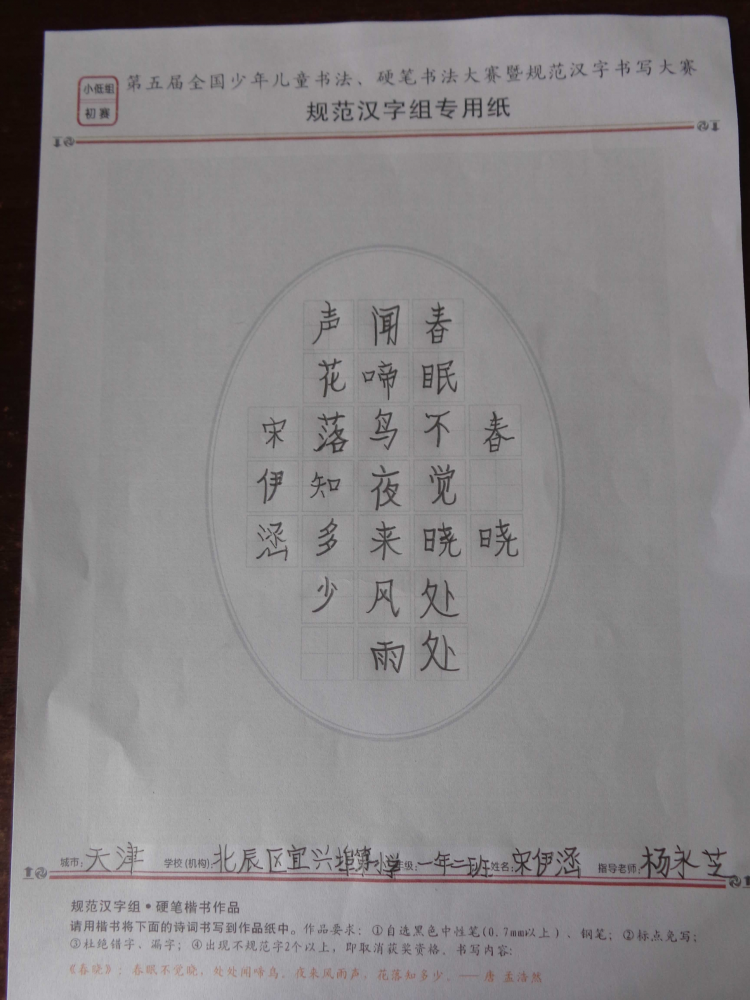 小低组
初赛
第五届全国少年儿童书法、硬笔书法大赛暨规范汉字书写大赛
规范汉字组专用纸
春晓
春眠不觉晓处处
闻啼鸟夜来风雨
声花落知多少
宋伊涵
城市:天津 学校(机构):北辰区宜兴埠第小学 年级:一年二班 姓名:宋伊涵 指导老师:杨永芝
规范汉字组·硬笔楷书作品
请用楷书将下面的诗词书写到作品纸中。作品要求:①自选黑色中性笔(0.7mm以上)、钢笔;②标点免写;
③杜绝错字、漏字;④出现不规范字2个以上,即取消获奖资格。书写内容:
《春晓》:春眠不觉晓,处处闻啼鸟。夜来风雨声,花落知多少。——唐 孟浩然